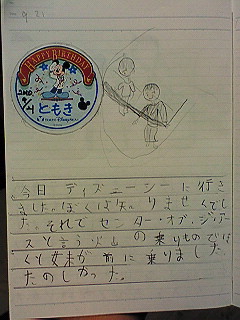 9.21
HAPPY BIRTHDAY
ともき
今日ディズニーシーに行き
ました。ぼくは知りませんでし
た。それでセンター・オブ・ジ・アー
スと言う火山の乗りものでぼ
くと妹が前に乗りました
たのしかった。